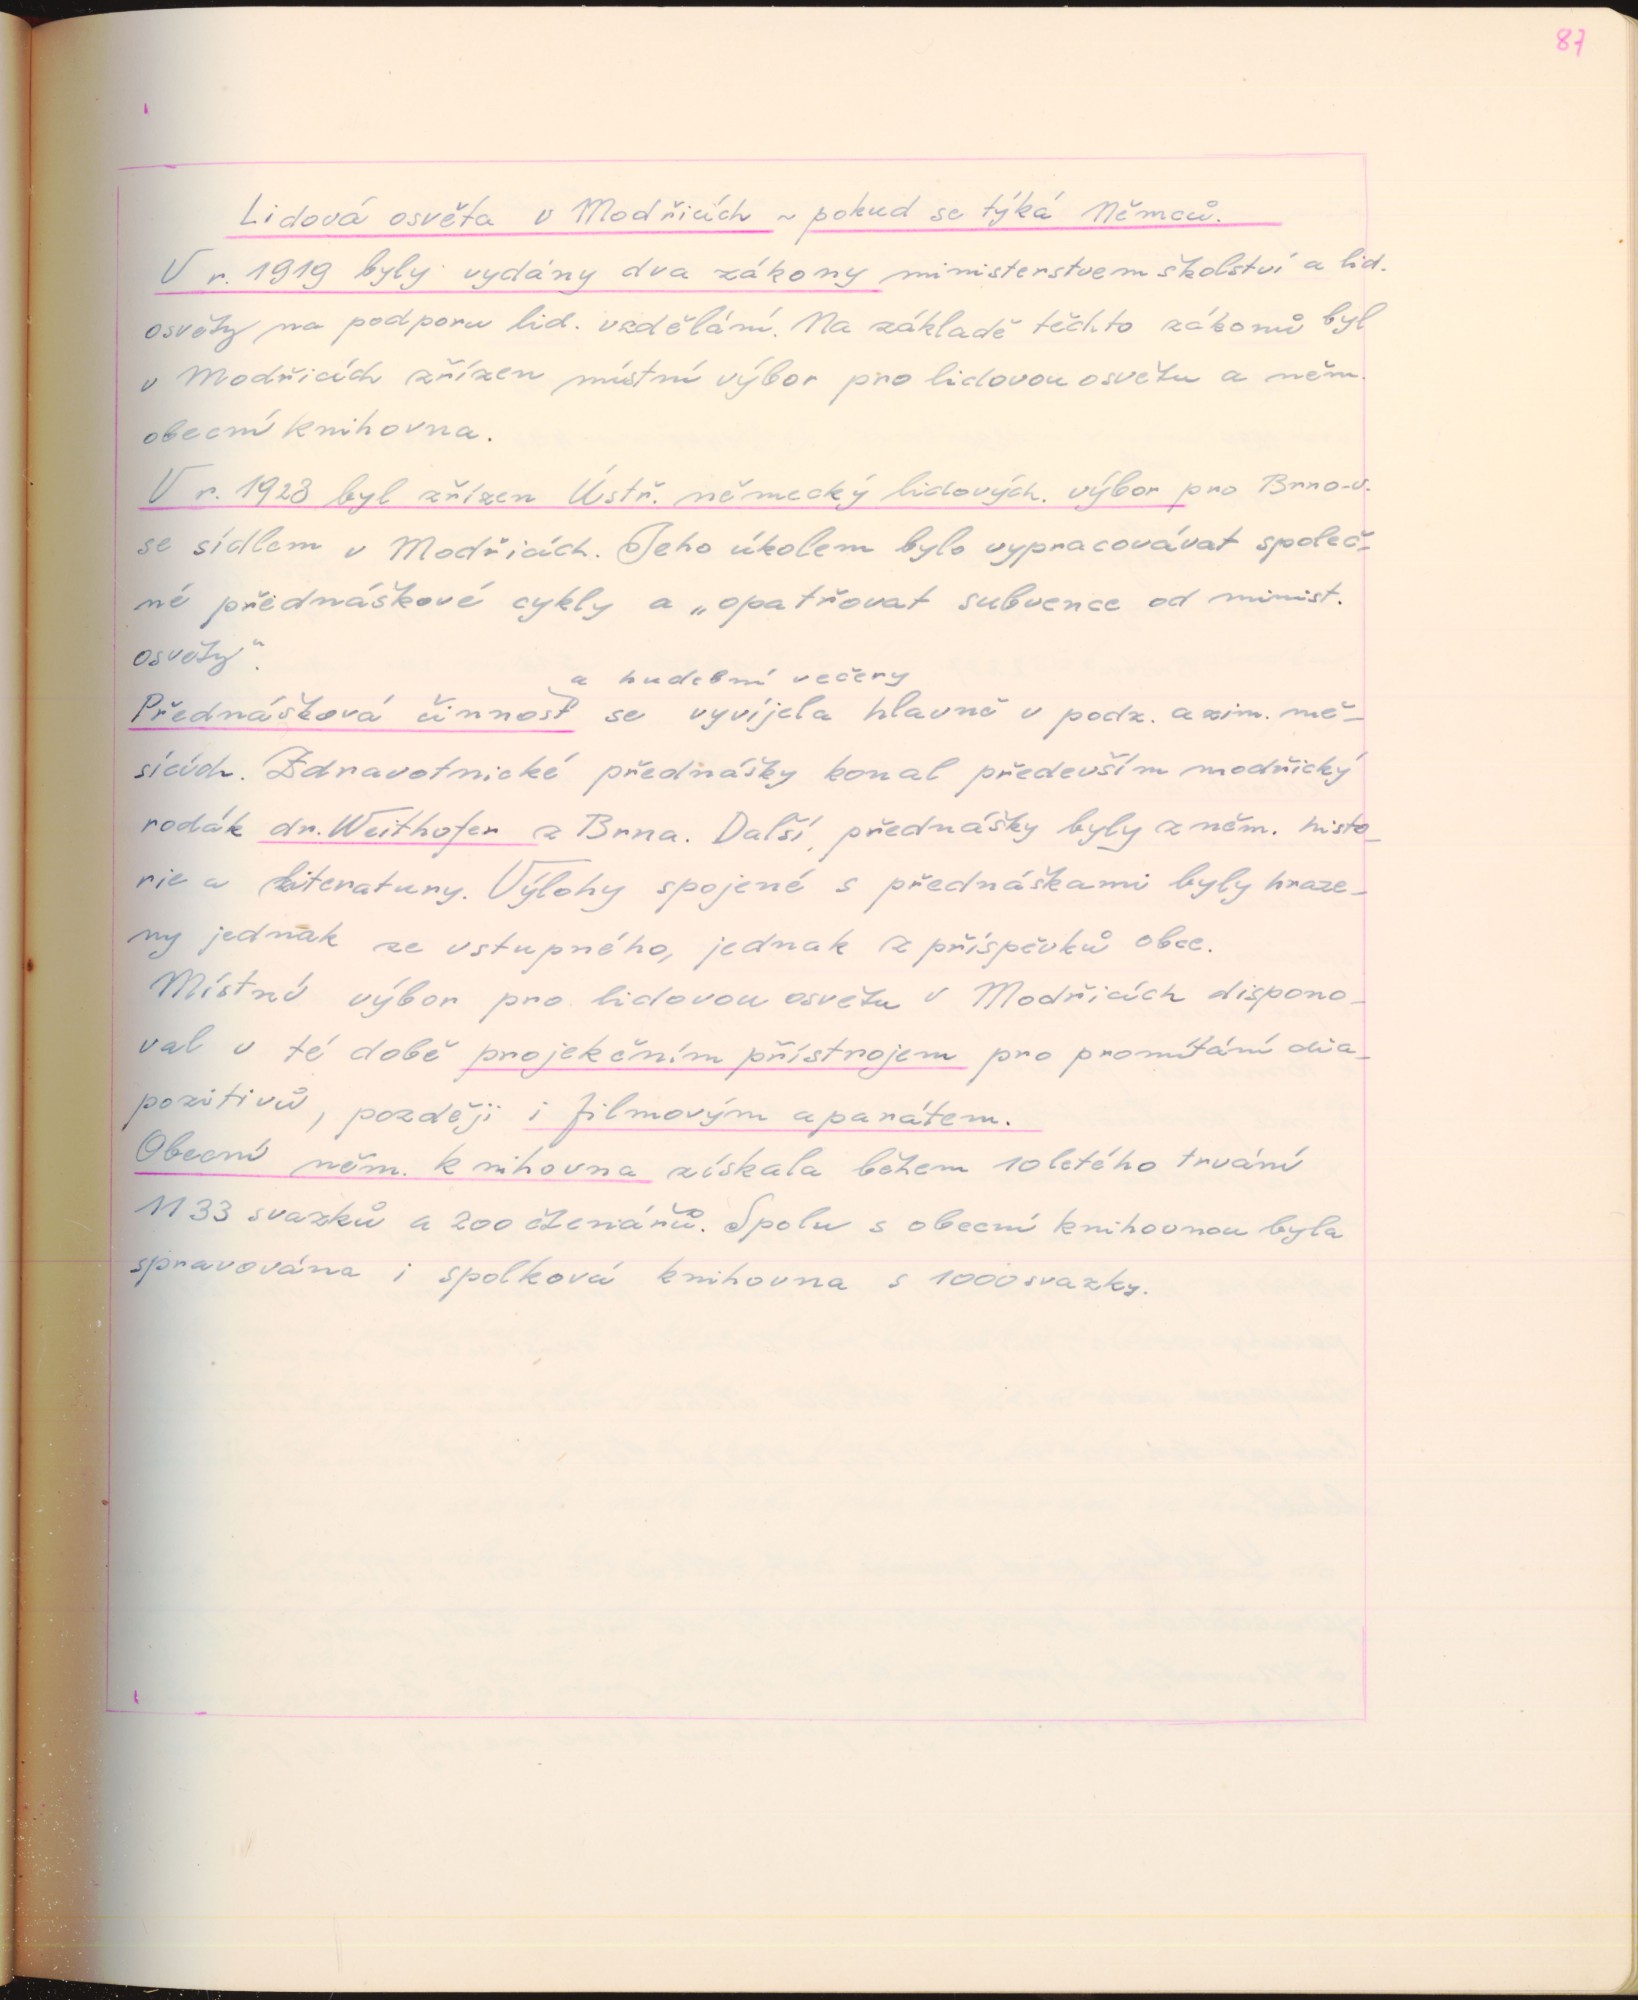 87
Lidová osvěta v Modřicích ~ pokud se týká Němců.
V r. 1919 byly vydány dva zákony ministerstvem školství a lid.
osvěty na podporu lid. vzdělání. Na základě těchto zákonů byl
v Modřicích zřízen místní výbor pro lidovou osvětu a něm.
obecní knihovna.
V r. 1923 byl zřízen Ústř. německý lidových. výbor pro Brno-v.
se sídlem v Modřicích. Jeho úkolem bylo vypracovávat společ-
né přednáškové cykly a „opatřovat subvence od minist.
osvěty“.
a hudební večery
Přednášková činnost se vyvíjela hlavně v podz. a zim. mě-
sících. Zdravotnické přednášky konal především modřický
rodák dr. Weithofer z Brna. Další, přednášky byly z něm. histo-
rie a literatury. Výlohy spojené s přednáškami byly hraze-
ny jednak ze vstupného, jednak z příspěvků obce.
Místní výbor pro lidovou osvětu v Modřicích dispono-
val v té době projekčním přístrojem pro promítání dia-
pozitivů, později i filmovým aparátem.
Obecní něm. knihovna získala během 10letého trvání
1133 svazků a 200 čtenářů. Spolu s obecní knihovnou byla
spravována i spolková knihovna s 1000 svazky.